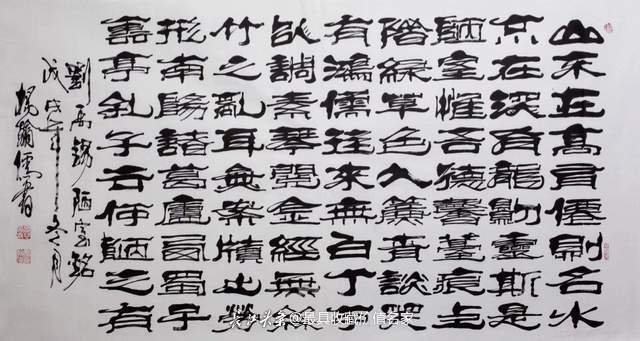 山不在高有僊則名水
不在深有龍則靈斯是
陋室惟吾德馨苔痕上
階綠草色入簾青談笑
有鴻儒往來無白丁可
以調素琴閱金經無絲
竹之亂耳無案牘之勞
形南陽諸葛廬西蜀子
雲亭孔子云何陋之有
劉禹錫陋室銘
戊戌年冬月
儒書
@最具收藏价值名家